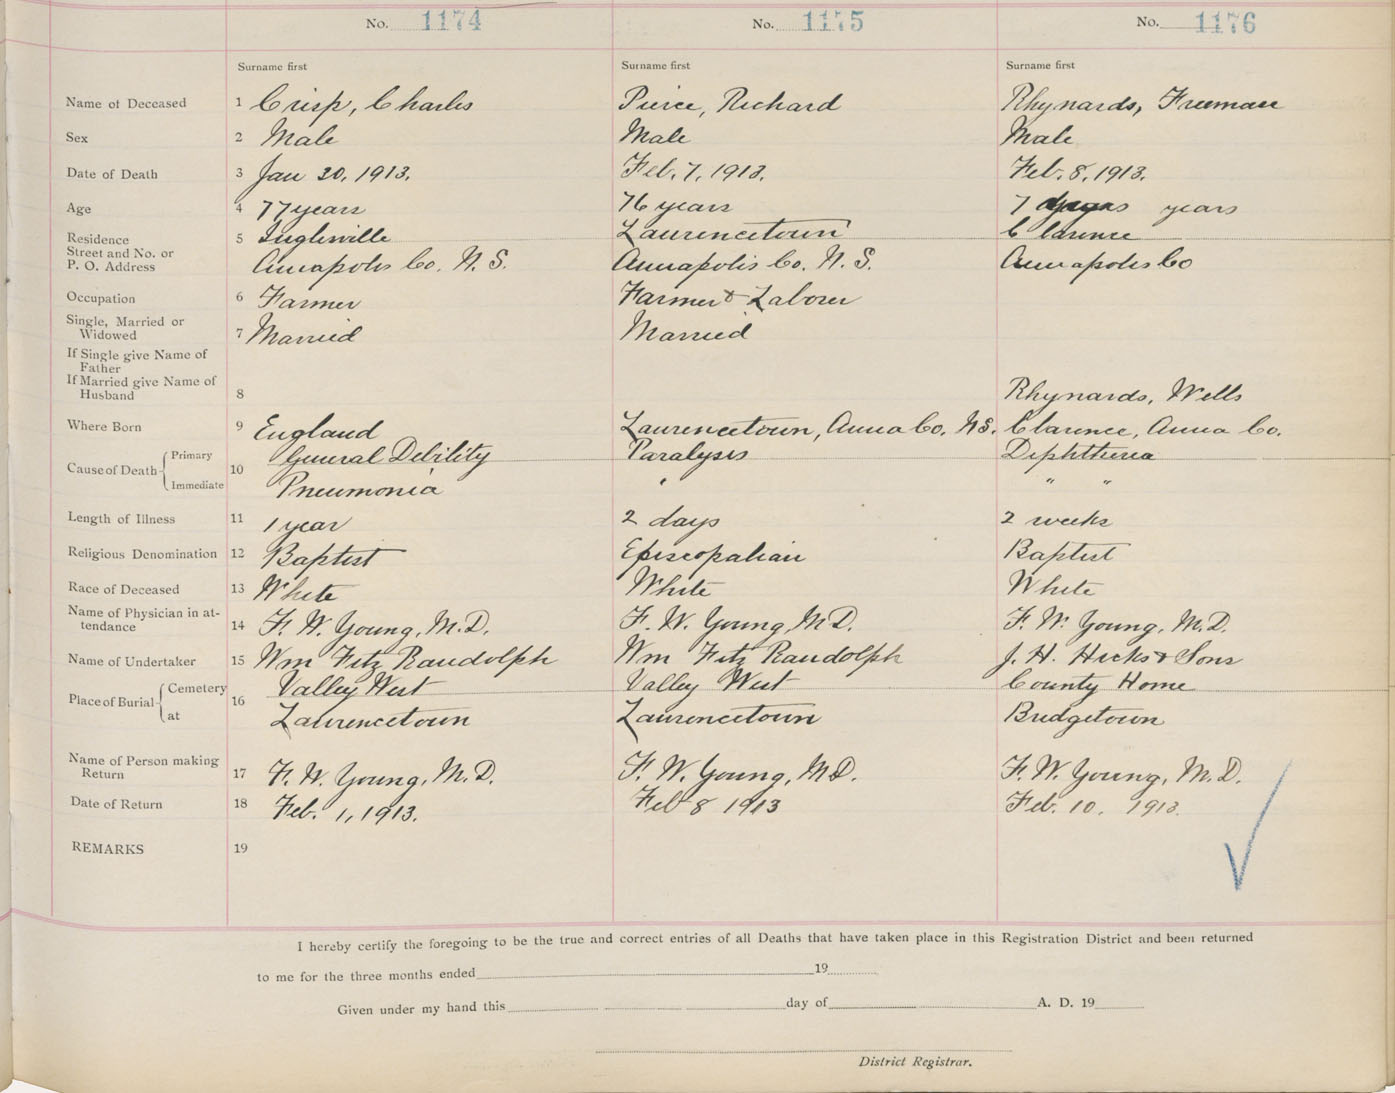 No. 1174 No. 1175 No. 1176
Surname first Surname first Surname first
Name of Deceased 1 Crisp, Charles Pierce, Richard Rhynards, Freeman
Sex 2 Male Male Male
Date of Death 3 Jan 20, 1913. Feb. 7, 1913. Feb. 8, 1913.
Age 4 77 years 76 years 7 years
Residence 5 Inglisville Laurencetown Clarence
Street and No. or
P. O. Address Annapolis Co. N. S. Annapolis Co. N. S. Annapolis Co
Occupation 6 Farmer Farmer & Laborer
Single, Married or
Widowed 7 Married Married
If Single give Name of
Father
If Married give Name of
Husband 8 Rhynards, Wells
Where Born 9 England Laurencetown, Anna Co. N.S. Clarence, Anna Co.
Cause of Death Primary 10 General Debility Paralysis Diphtheria
Immediate Pneumonia " "
Length of Illness 11 1 year 2 days 2 weeks
Religious Denomination 12 Baptist Episcopalian Baptist
Race of Deceased 13 White White White
Name of Physician in at-
tendance 14 F. W. Young, M.D. F. W. Young, M.D. F. W. Young, M.D.
Name of Undertaker 15 Wm Fitz Randolph Wm Fitz Randolph J. H. Hicks & Sons
Place of Burial Cemetery 16 Valley West Valley West County Home
at Laurencetown Laurencetown Bridgetown
Name of Person making
Return 17 F. W. Young, M.D. F. W. Young, M.D. F. W. Young, M.D.
Date of Return 18 Feb. 1, 1913. Feb 8 1913 Feb. 10, 1913.
REMARKS 19
I hereby certify the foregoing to be the true and correct entries of all Deaths that have taken place in this Registration District and been returned
to me for the three months ended 19
Given under my hand this day of A. D. 19
District Registrar.